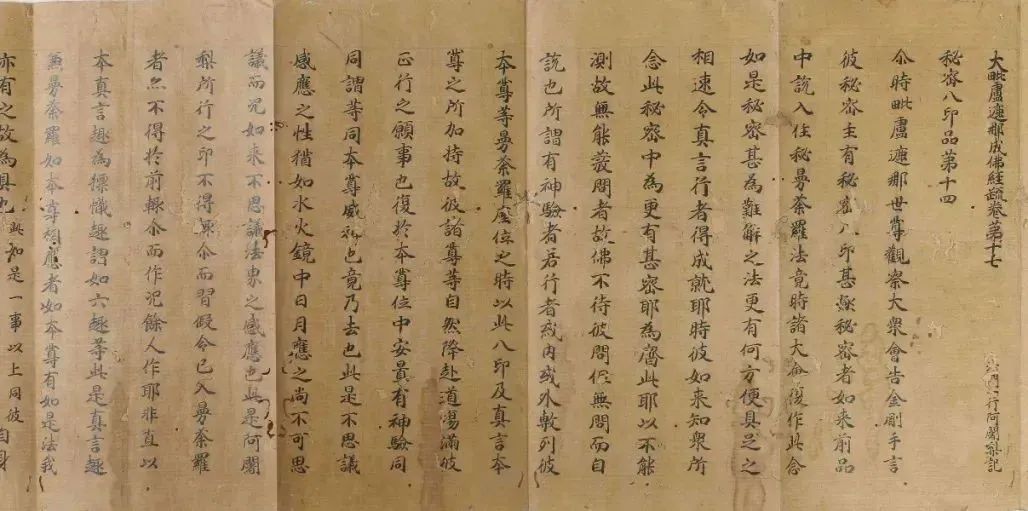 大毗盧遮那成佛經疏卷第十七
沙門一行阿闍梨記
秘密八印品第十四
尒時毗盧遮那世尊觀察大衆會告金剛手言
彼秘密主有秘密八印甚深秘密者如來前品
中說入住秘曼荼羅法竟時諸大會復作此念
如是秘密甚為難解之法更有何方便具足之
相速令真言行者得成就耶時彼如來知衆所
念此秘密中為更有甚密耶為齊此耶以不能
測故無能發問者故佛不待彼問但無問而自
說也所謂有神驗者若行者或內或外敷列彼
本尊等曼荼羅座位之時以此八印及真言本
尊之所加持故彼諸尊等自然降赴道場滿彼
正行之願事也復於本尊位中安置有神驗同
同謂等同本尊威神也竟乃去也此是不思議
感應之性猶如水火鏡中日月應之尚不可思
議而況如來不思議法界之感應也此是阿闍
梨所行之印不得輒尒而習假令已入曼荼羅
者亦不得於前輒尒而作況餘人作耶非直以
本真言趣為幖幟趣謂如六趣等此是真言趣
無曼荼羅如本尊相應者如本尊有如是法我
亦有之故為具也此如是一事以上同彼自身